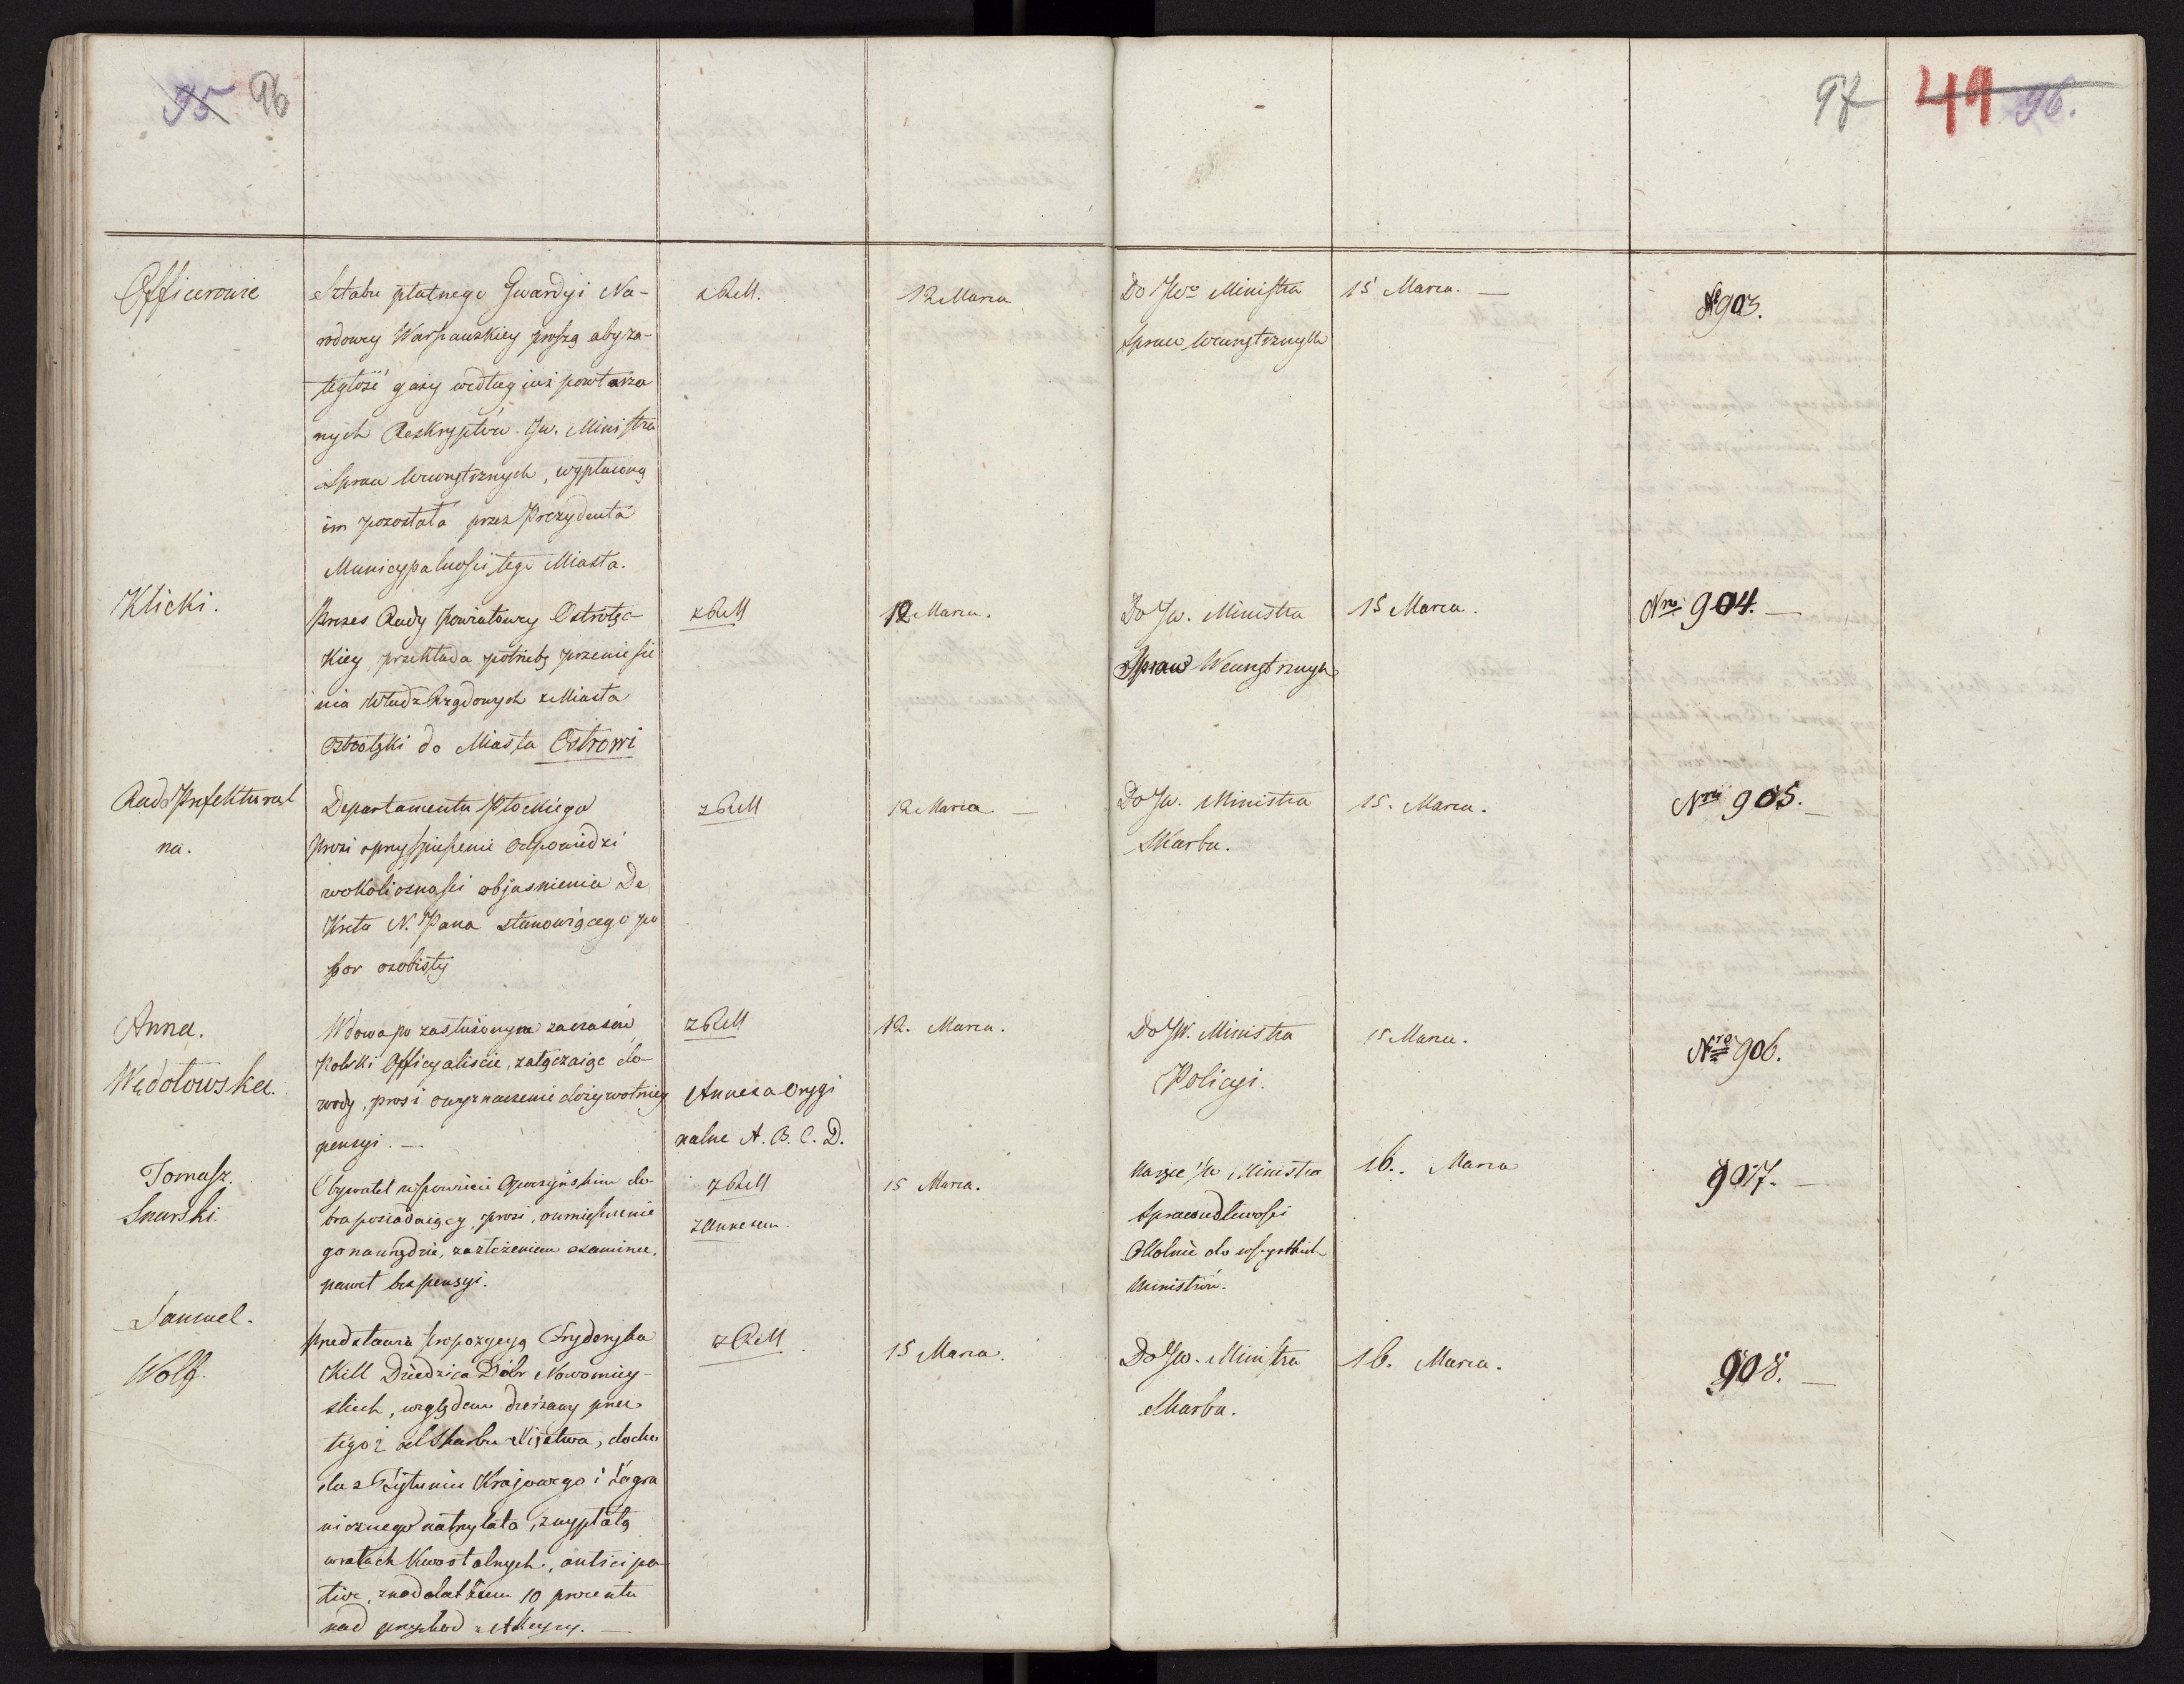 95 96
97 49 96.
Officerowie
Sztabu płatnego Gwardyi Na-
rodowey Warszawskiey proszą aby za-
ległość gaży według iuż powtarza
nych Reskryptów JW. Ministra
Spraw Wewnętrznych, wypłaconą
im pozostała przez Prezydenta
Municypalności tego Miasta.
z R M.
12 Marca
Do JWo Ministra
Spraw Wewnętrznych
15 Marca. —
No 903.
Klicki.
Prezes Rady Powiatowey Ostrołęc-
kiey przekłada potrzebę przeniesie
nia Władz Rządowych z Miasta
Ostrołęki do Miasta Ostrowi
z R M
12 Marca.
Do JW. Ministra
Spraw Wewnętrznych
15 Marca.
Nro 904. —
Rada Prefektural
na.
Departamentu Płockiego
Prosi o przyspieszenie odpowiedzi
w okoliczności objasnienia De
kretu N. Pana stanowiącego po
bor osobisty
z R M
12 Marca —
Do JW. Ministra
Skarbu.
15. Marca.
Nro 905. —
Anna.
Wędołowska.
Wdowa po zasłużonym za czasów
Polski Officyaliscie, załączaiąc do-
wody, prosi o wyznaczenie dożywotniey
pensyi. —
z R M
Annexa orygi
nalne A. B. C. D.
12. Marca.
Do JW. Ministra
Policyi.
15 Marca.
Nro 906.
Tomasz.
Snarski.
Obywatel w powiecie Opoczyńskim do-
bra posiadaiący, prosi, o umieszczenie
go na urzędzie, za złożeniem examinu,
nawet bez pensyi.
z R M
z Annexem.
15 Marca.
Na ręce JW Ministra
Sprawiedliwości
Okolnie do wszystkich
Ministrów.
16. Marca
907. —
Samuel.
Wolff.
Przedstawia propozycyą Fryderyka
Kill Dziedzica Dóbr Nowomiey-
skich, względem dzierżawy przez
tegoż od Skarbu Xięstwa, docho
du z Tytuniu Krajowego i Zagra
nicznego na trzy lata, z wypłatą
w ratach kwartalnych, antici pa-
tive, z naddatkiem 10 procentu
nad przychod z Akcyzy. —
z R M
15 Marca.
Do JW. Ministra
Skarbu.
16. Marca.
908. —